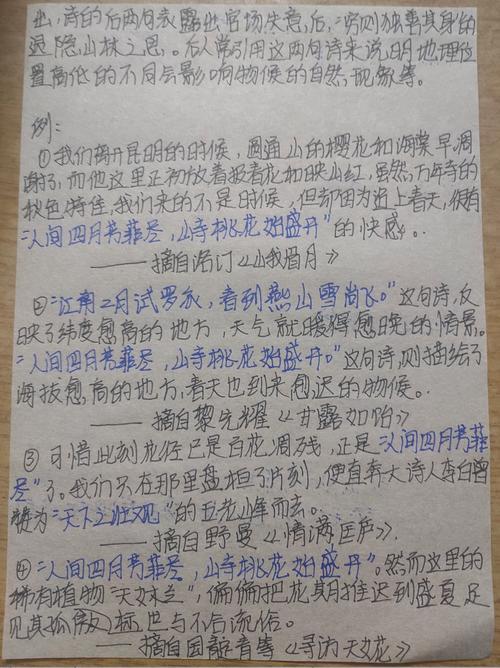 出,诗的后两句表露出官场失意后,"穷则独善其身"的
退隐山林之思。后人常引用这两句诗来说明地理位
置高低的不同会影响物候的自然现象等。
例:
①我们离开昆明的时候,圆通山的樱花和海棠早凋
谢了,而他这里正初放着报春花和映山红,虽然,万年寺的
秋色特佳,我们来的不是时候,但却因为追上春天,便有
"人间四月芳菲尽,山寺桃花始盛开"的快感。
——摘自洛汀《山我眉月》
②"江南二月试罗衣,看到燕山雪尚飞。"这句诗,反
映了纬度愈高的地方,天气就暖得愈晚的情景。
"人间四月芳菲尽,山寺桃花始盛开。"这句诗,则描绘了
海拔愈高的地方,春天也到来愈迟的物候。
——摘自黎先耀《甘露如饴》
③可惜此刻花径已是百花凋残,正是"人间四月芳菲
尽"了。我们只在那里盘桓了片刻,便直奔大诗人李白曾
赞为"天下之壮观"的五老峰而去。
——摘自野曼《情满匡庐》
④"人间四月芳菲尽,山寺桃花始盛开"。然而这里的
稀有植物"天女兰",偏偏把花期推迟到盛夏,足
见其孤傲,标也与不合流俗。
——摘自 《寻访天女花》